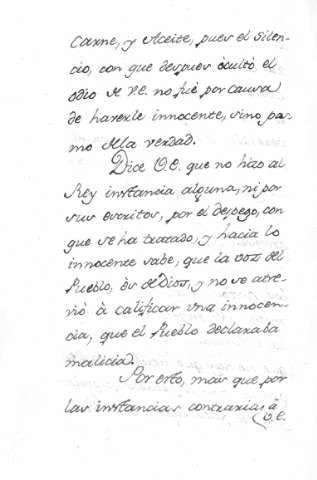 Carne, y Aceite, pues el silen-
cio, con que despues ócultó el
odio de V.E. no fué por causa
de hazerle innocente, sino pas-
mo della verdad.
Dice V.E. que no hizo al
Rey instancia alguna, ni por
sus escritos, por el despego, con
que se ha tratado, y hacia lo
innocente sabe, que la voz del
Pueblo, ès de Dios, y no se atre-
vió à calificar una innocen-
cia, que el Pueblo declaraba
malicia.
Por esto, mas que por
las instancias contrarias à
V.E.